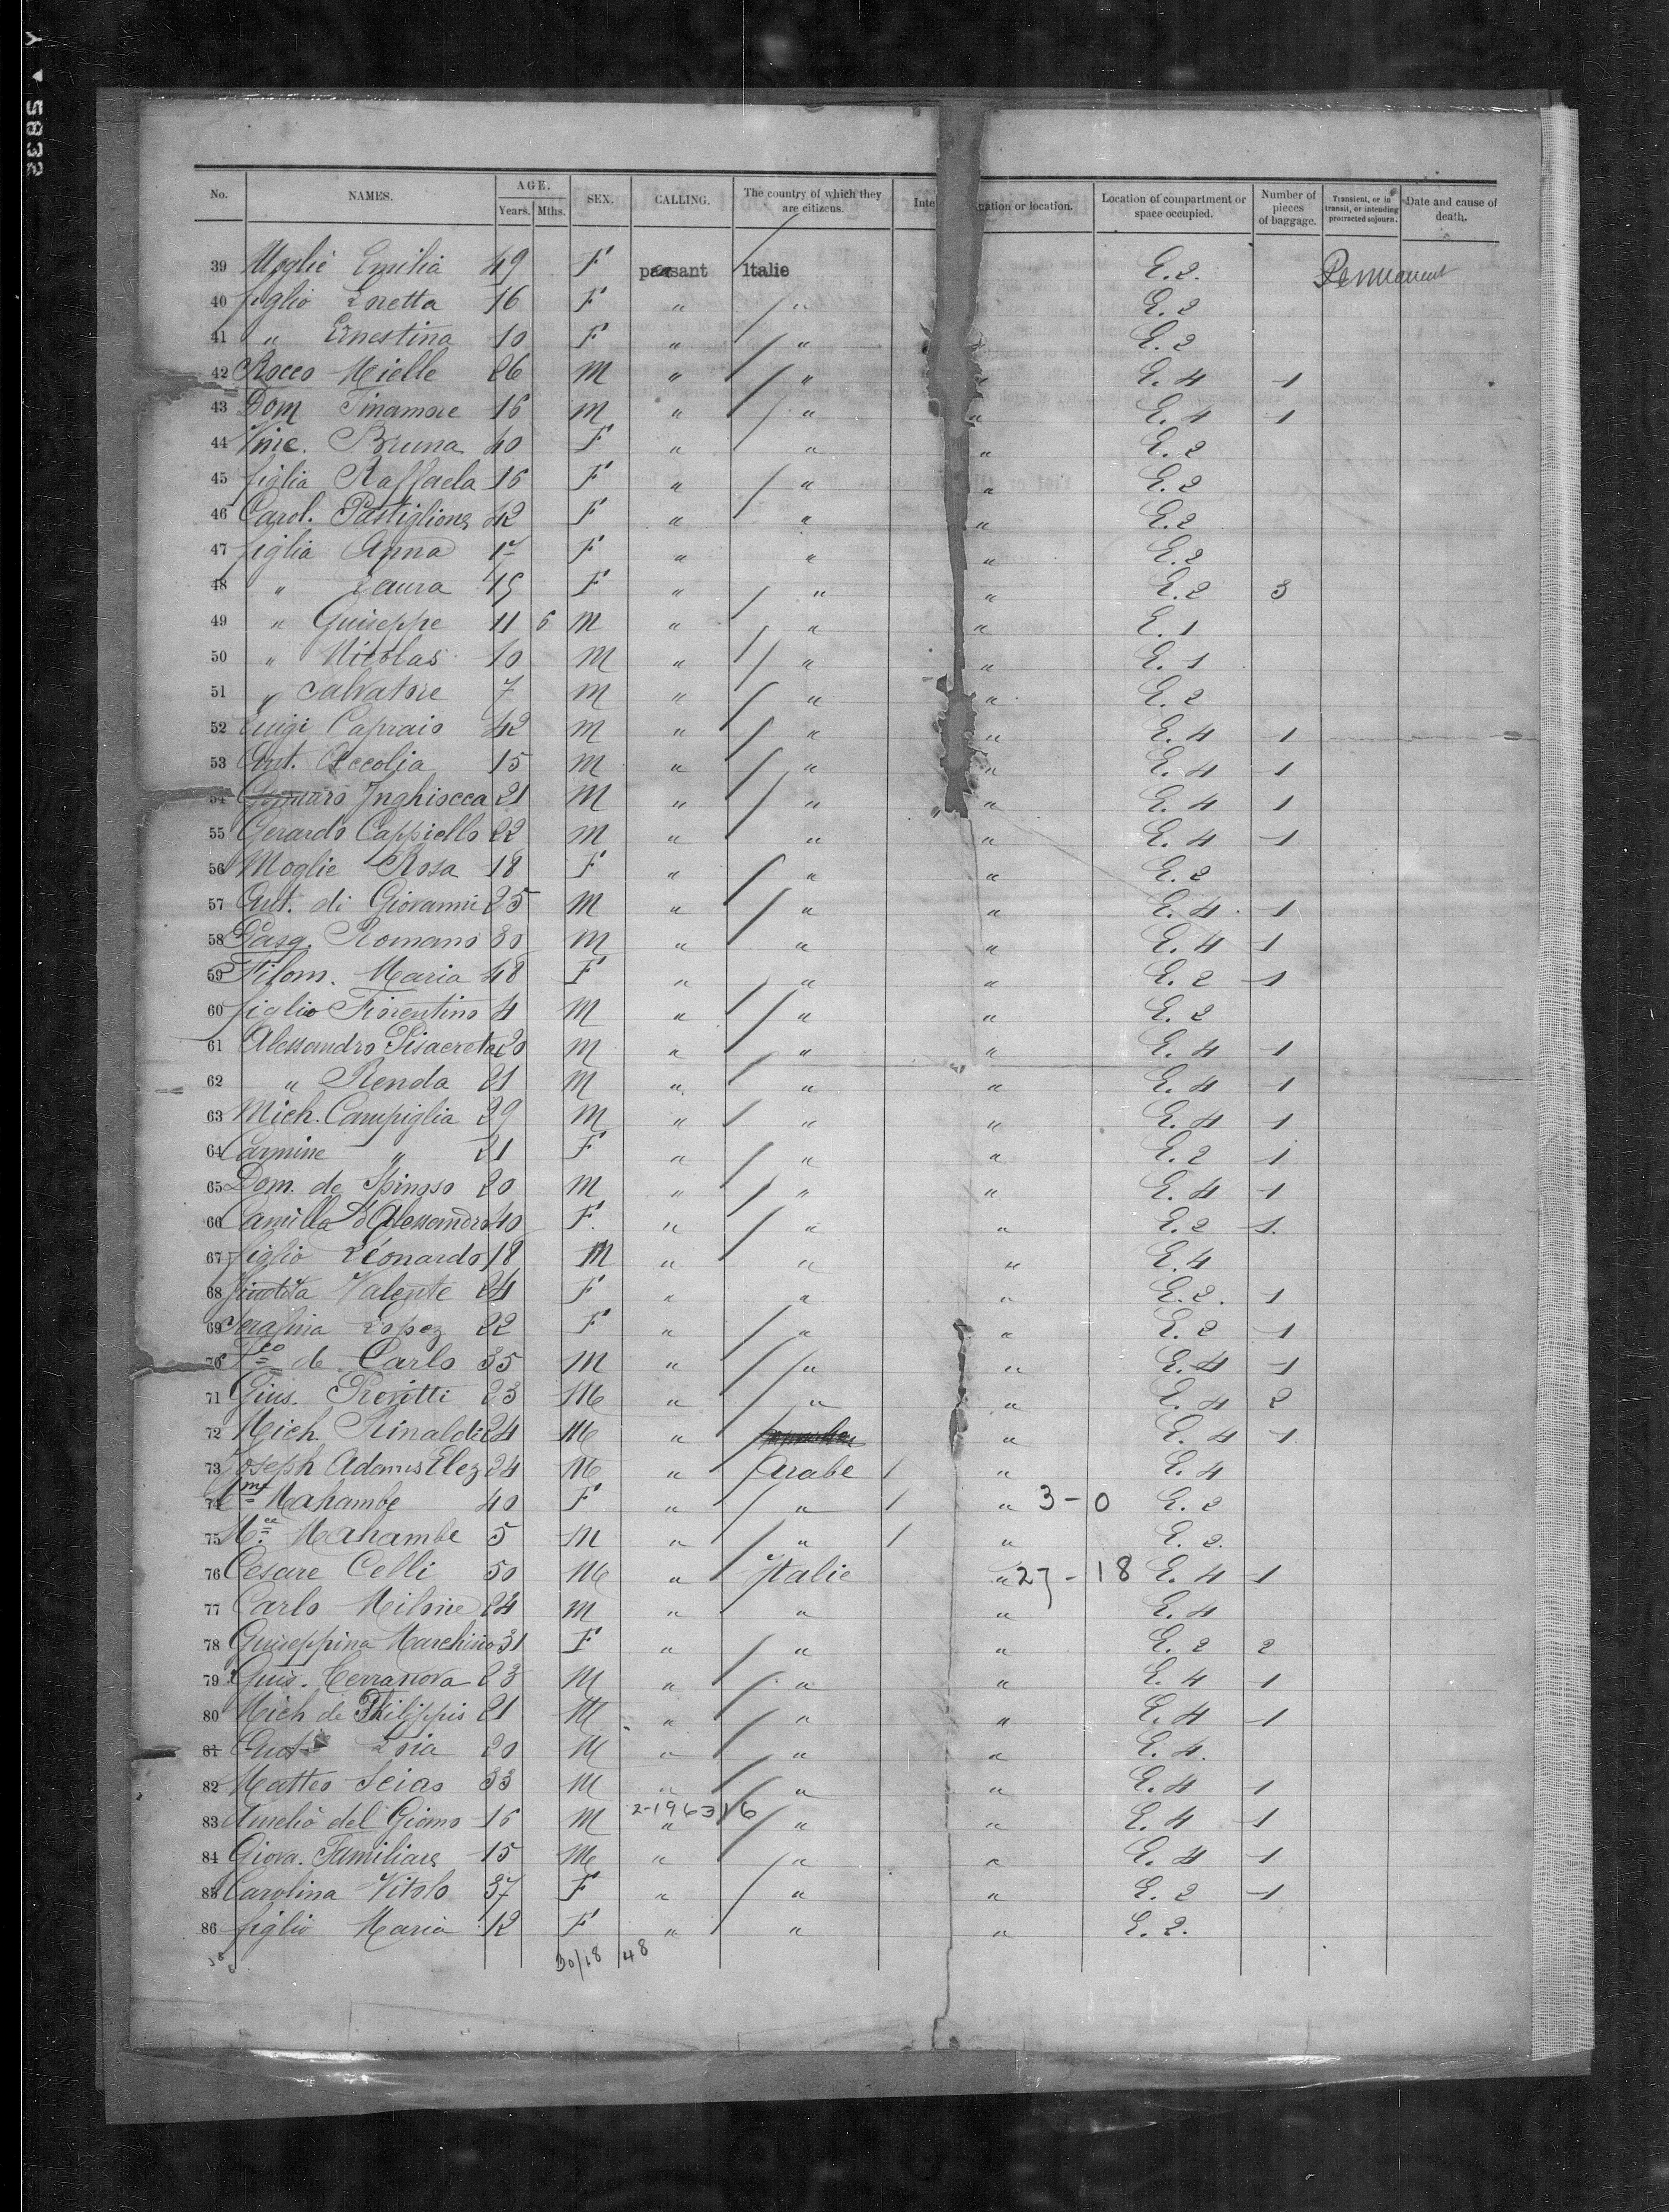 No. NAMES. AGE. Years. Mths. SEX. CALLING. The country of which they are citizens. Inte nation or location. Location of compartment or space occupied. Number of pieces of baggage. Transient, or in transit, or intending protracted sojourn. Date and cause of death.
39 Moglie Emilia 49 F peasant Italie E. 2. Permanent
40 figlio Loretta 16 F " " E. 2
41 " Ernestina 10 F " " E. 2
42 Rocco Mielle 26 M " " " E. 4 1
43 Dom Finamore 16 M " " " E. 4 1
44 Vinc. Bruna 40 F " " " E. 2
45 figlia Raffaela 16 F " " " E. 2
46 Carol. Pastiglione 42 F " " " E. 2
47 figlia Anna 17 F " " " E. 2
48 " Laura 15 F " " " E. 2 3
49 " Guiseppe 11 6 M " " " E. 1
50 " Nicolas 10 M " " " E. 1
51 " Salvatore 7 M " " " E. 2
52 Luigi Caprais 42 M " " " E. 4 1
53 Ant. Accolia 15 M " " " E. 4 1
54 Gennaro Inghiocca 21 M " " " E. 4 1
55 Gerardo Cappiello 22 M " " " E. 4 1
56 Moglie Rosa 18 F " " " E. 2
57 Ant. di Giovanni 25 M " " " E. 4 1
58 Pasq. Romano 30 M " " " E. 4 1
59 Filom. Maria 48 F " " " E. 2 1
60 figlio Fiorentino 4 M " " " E. 2
61 Alessandro Pisacreta 20 M " " " E. 4 1
62 " Renda 21 M " " " E. 4 1
63 Mich. Campiglia 29 M " " " E. 4 1
64 Carmine " 21 F " " " E. 2 1
65 Dom. de Spinoso 20 M " " " E. 4 1
66 Camilla d'Alessandro 40 F. " " " E. 2 1.
67 figlio Léonardo 18 M " " " E. 4
68 Valente 24 F " " " E. 2. 1
69 Serafina Lopez 22 F " " " E. 2 1
70 Fco de Carlo 35 M " " " E. 4 1
71 Gius. Previtti 23 M " " " E. 4 2
72 Mich Rinaldi 24 M " " E. 4 1
73 Joseph Adams Elez 24 M " Arabe 1 " E. 4
74 Mahambe 40 F " " 1 " 3 - 0 E. 2
75 Mahambe 5 M " " 1 " E. 2.
76 Cesare Celli 50 M " Italie " 27 - 18 E. 4 1
77 Carlo Milone 24 M " " " E. 4
78 Guiseppina Marchiso 31 F " " " E. 2 2
79 Guis. Cerranova 23 M " " " E. 4 1
80 Mich de Philippis 21 M " " " E. 4 1
81 Loia 20 M " " " E. 4.
82 Matteo Scias 33 M " " " E. 4 1
83 Aurelio del Giomo 16 M 2-196316 " " " E. 4 1
84 Giova. Familiare 15 M " " " E. 4 1
85 Carolina Vitolo 37 F " " " E. 2 1
86 figlio Maria 12 F " " " E. 2.
30/18 48